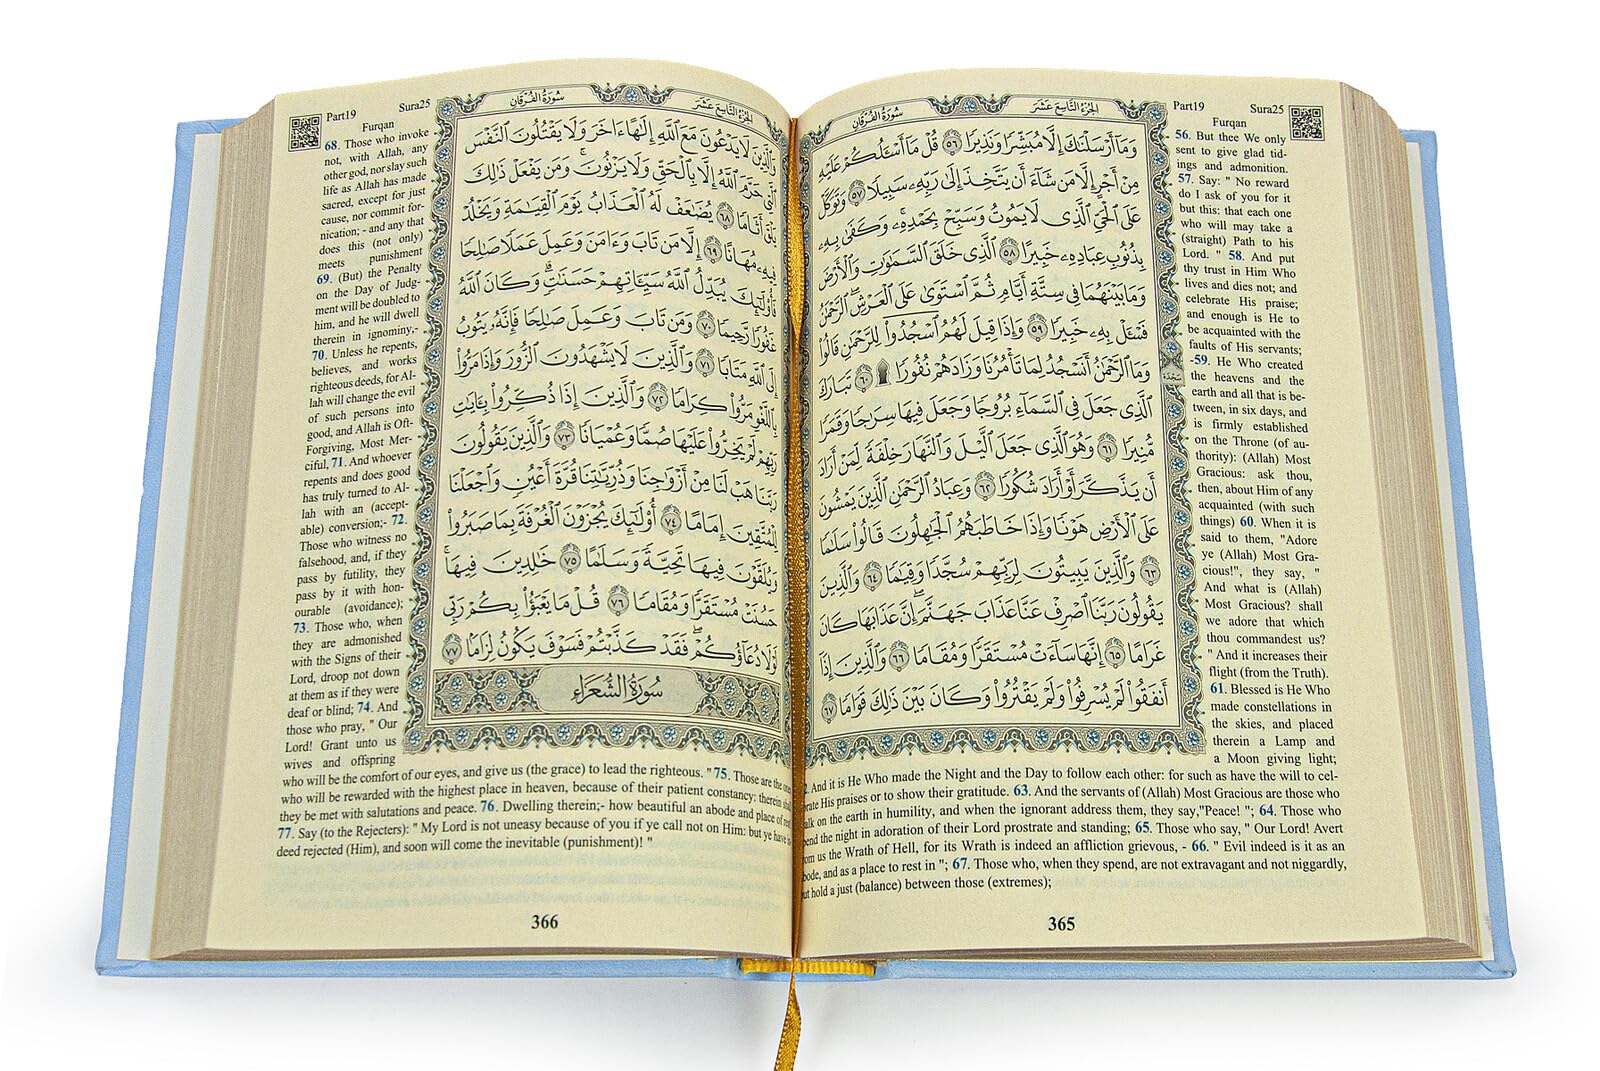 Part19 Sura25
Furqan
سُورَةُ الفُرْقَانِ
الجُزءُ التَّاسِعَ عَشَرَ
وَمَآ أَرْسَلْنَٰكَ إِلَّا مُبَشِّرًا وَنَذِيرًا ٥٦ قُلْ مَآ أَسْـَٔلُكُمْ عَلَيْهِ
مِنْ أَجْرٍ إِلَّا مَن شَآءَ أَن يَتَّخِذَ إِلَىٰ رَبِّهِۦ سَبِيلًا ٥٧ وَتَوَكَّلْ
عَلَى ٱلْحَىِّ ٱلَّذِى لَا يَمُوتُ وَسَبِّحْ بِحَمْدِهِۦ وَكَفَىٰ بِهِۦ
بِذُنُوبِ عِبَادِهِۦ خَبِيرًا ٥٨ ٱلَّذِى خَلَقَ ٱلسَّمَٰوَٰتِ وَٱلْأَرْضَ
وَمَا بَيْنَهُمَا فِى سِتَّةِ أَيَّامٍ ثُمَّ ٱسْتَوَىٰ عَلَى ٱلْعَرْشِ ٱلرَّحْمَٰنُ
فَسْـَٔلْ بِهِۦ خَبِيرًا ٥٩ وَإِذَا قِيلَ لَهُمُ ٱسْجُدُوا۟ لِلرَّحْمَٰنِ قَالُوا۟
وَمَا ٱلرَّحْمَٰنُ أَنَسْجُدُ لِمَا تَأْمُرُنَا وَزَادَهُمْ نُفُورًا ۩ ٦٠ تَبَارَكَ
ٱلَّذِى جَعَلَ فِى ٱلسَّمَآءِ بُرُوجًا وَجَعَلَ فِيهَا سِرَٰجًا وَقَمَرًا
مُّنِيرًا ٦١ وَهُوَ ٱلَّذِى جَعَلَ ٱلَّيْلَ وَٱلنَّهَارَ خِلْفَةً لِّمَنْ أَرَادَ
أَن يَذَّكَّرَ أَوْ أَرَادَ شُكُورًا ٦٢ وَعِبَادُ ٱلرَّحْمَٰنِ ٱلَّذِينَ يَمْشُونَ
عَلَى ٱلْأَرْضِ هَوْنًا وَإِذَا خَاطَبَهُمُ ٱلْجَٰهِلُونَ قَالُوا۟ سَلَٰمًا
٦٣ وَٱلَّذِينَ يَبِيتُونَ لِرَبِّهِمْ سُجَّدًا وَقِيَٰمًا ٦٤ وَٱلَّذِينَ
يَقُولُونَ رَبَّنَا ٱصْرِفْ عَنَّا عَذَابَ جَهَنَّمَ إِنَّ عَذَابَهَا كَانَ
غَرَامًا ٦٥ إِنَّهَا سَآءَتْ مُسْتَقَرًّا وَمُقَامًا ٦٦ وَٱلَّذِينَ إِذَآ
أَنفَقُوا۟ لَمْ يُسْرِفُوا۟ وَلَمْ يَقْتُرُوا۟ وَكَانَ بَيْنَ ذَٰلِكَ قَوَامًا ٦٧
سَجْدَة
56. But thee We only
sent to give glad tid-
ings and admonition.
57. Say: " No reward
do I ask of you for it
but this: that each one
who will may take a
(straight) Path to his
Lord. " 58. And put
thy trust in Him Who
lives and dies not; and
celebrate His praise;
and enough is He to
be acquainted with the
faults of His servants;
-59. He Who created
the heavens and the
earth and all that is be-
tween, in six days, and
is firmly established
on the Throne (of au-
thority): (Allah) Most
Gracious: ask thou,
then, about Him of any
acquainted (with such
things) 60. When it is
said to them, "Adore
ye (Allah) Most Gra-
cious!", they say, "
And what is (Allah)
Most Gracious? shall
we adore that which
thou commandest us?
" And it increases their
flight (from the Truth).
61. Blessed is He Who
made constellations in
the skies, and placed
therein a Lamp and
a Moon giving light;
And it is He Who made the Night and the Day to follow each other: for such as have the will to cel-
His praises or to show their gratitude. 63. And the servants of (Allah) Most Gracious are those who
on the earth in humility, and when the ignorant address them, they say,"Peace! "; 64. Those who
the night in adoration of their Lord prostrate and standing; 65. Those who say, " Our Lord! Avert
us the Wrath of Hell, for its Wrath is indeed an affliction grievous, - 66. " Evil indeed is it as an
and as a place to rest in "; 67. Those who, when they spend, are not extravagant and not niggardly,
hold a just (balance) between those (extremes);
365
Part19 Sura25
Furqan
سُورَةُ الفُرْقَانِ
الجُزءُ التَّاسِعَ عَشَرَ
وَٱلَّذِينَ لَا يَدْعُونَ مَعَ ٱللَّهِ إِلَٰهًا ءَاخَرَ وَلَا يَقْتُلُونَ ٱلنَّفْسَ
ٱلَّتِى حَرَّمَ ٱللَّهُ إِلَّا بِٱلْحَقِّ وَلَا يَزْنُونَ وَمَن يَفْعَلْ ذَٰلِكَ
يَلْقَ أَثَامًا ٦٨ يُضَٰعَفْ لَهُ ٱلْعَذَابُ يَوْمَ ٱلْقِيَٰمَةِ وَيَخْلُدْ
فِيهِۦ مُهَانًا ٦٩ إِلَّا مَن تَابَ وَءَامَنَ وَعَمِلَ عَمَلًا صَٰلِحًا
فَأُو۟لَٰٓئِكَ يُبَدِّلُ ٱللَّهُ سَيِّـَٔاتِهِمْ حَسَنَٰتٍ وَكَانَ ٱللَّهُ
غَفُورًا رَّحِيمًا ٧٠ وَمَن تَابَ وَعَمِلَ صَٰلِحًا فَإِنَّهُۥ يَتُوبُ
إِلَى ٱللَّهِ مَتَابًا ٧١ وَٱلَّذِينَ لَا يَشْهَدُونَ ٱلزُّورَ وَإِذَا مَرُّوا۟
بِٱللَّغْوِ مَرُّوا۟ كِرَامًا ٧٢ وَٱلَّذِينَ إِذَا ذُكِّرُوا۟ بِـَٔايَٰتِ
رَبِّهِمْ لَمْ يَخِرُّوا۟ عَلَيْهَا صُمًّا وَعُمْيَانًا ٧٣ وَٱلَّذِينَ يَقُولُونَ
رَبَّنَا هَبْ لَنَا مِنْ أَزْوَٰجِنَا وَذُرِّيَّٰتِنَا قُرَّةَ أَعْيُنٍ وَٱجْعَلْنَا
لِلْمُتَّقِينَ إِمَامًا ٧٤ أُو۟لَٰٓئِكَ يُجْزَوْنَ ٱلْغُرْفَةَ بِمَا صَبَرُوا۟
وَيُلَقَّوْنَ فِيهَا تَحِيَّةً وَسَلَٰمًا ٧٥ خَٰلِدِينَ فِيهَا
حَسُنَتْ مُسْتَقَرًّا وَمُقَامًا ٧٦ قُلْ مَا يَعْبَؤُا۟ بِكُمْ رَبِّى
لَوْلَا دُعَآؤُكُمْ فَقَدْ كَذَّبْتُمْ فَسَوْفَ يَكُونُ لِزَامًا ٧٧
سُورَةُ الشُّعَرَاءِ
68. Those who invoke
not, with Allah, any
other god, nor slay such
life as Allah has made
sacred, except for just
cause, nor commit for-
nication; - and any that
does this (not only)
meets punishment
69. (But) the Penalty
on the Day of Judg-
ment will be doubled to
him, and he will dwell
therein in ignominy,-
70. Unless he repents,
believes, and works
righteous deeds, for Al-
lah will change the evil
of such persons into
good, and Allah is Oft-
Forgiving, Most Mer-
ciful, 71. And whoever
repents and does good
has truly turned to Al-
lah with an (accept-
able) conversion;- 72.
Those who witness no
falsehood, and, if they
pass by futility, they
pass by it with hon-
ourable (avoidance);
73. Those who, when
they are admonished
with the Signs of their
Lord, droop not down
at them as if they were
deaf or blind; 74. And
those who pray, " Our
Lord! Grant unto us
wives and offspring
who will be the comfort of our eyes, and give us (the grace) to lead the righteous. " 75. Those are the
who will be rewarded with the highest place in heaven, because of their patient constancy: therein
they be met with salutations and peace. 76. Dwelling therein;- how beautiful an abode and place of
77. Say (to the Rejecters): " My Lord is not uneasy because of you if ye call not on Him: but ye have
deed rejected (Him), and soon will come the inevitable (punishment)! "
366